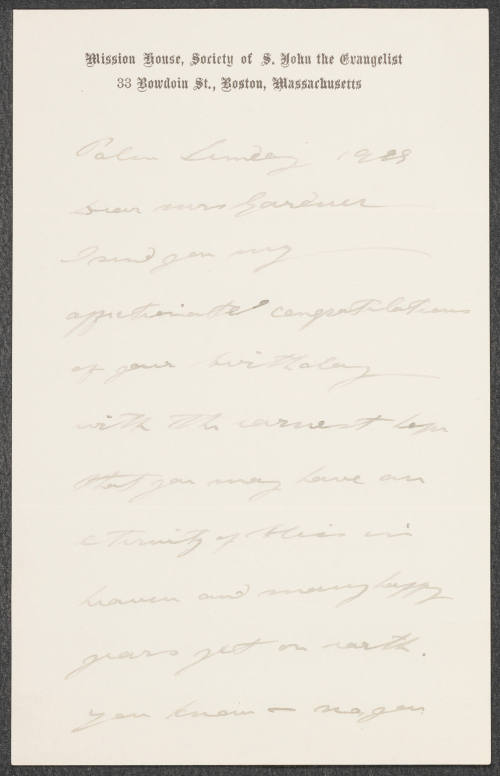 Mission House, Society of S. John the Evangelist
33 Bowdoin St., Boston, Massachusetts
Palm Sunday 19
Dear Mrs Gardner
I send you my
affectionate congratulations
of your birthday
with the earnest hope
that you may have an
eternity of bliss in
heaven and many happy
years yet on earth.
you know – no you